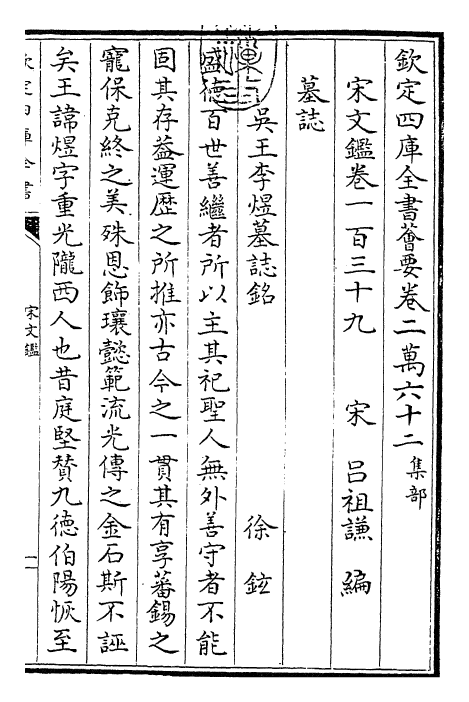 欽定四庫全書薈要卷二萬六十二 集部
宋文鑑卷一百三十九
宋 呂祖謙 編
墓誌
吳王李煜墓誌銘 徐鉉
盛徳百世善繼者所以主其祀聖人無外善守者不能
固其存葢運歴之所推亦古今之一貫其有享蕃錫之
寵保克終之美殊恩飾壤懿範流光傳之金石斯不誣
矣王諱煜字重光隴西人也昔庭堅賛九徳伯陽恢至
欽定四庫全書
宋文鑑
一